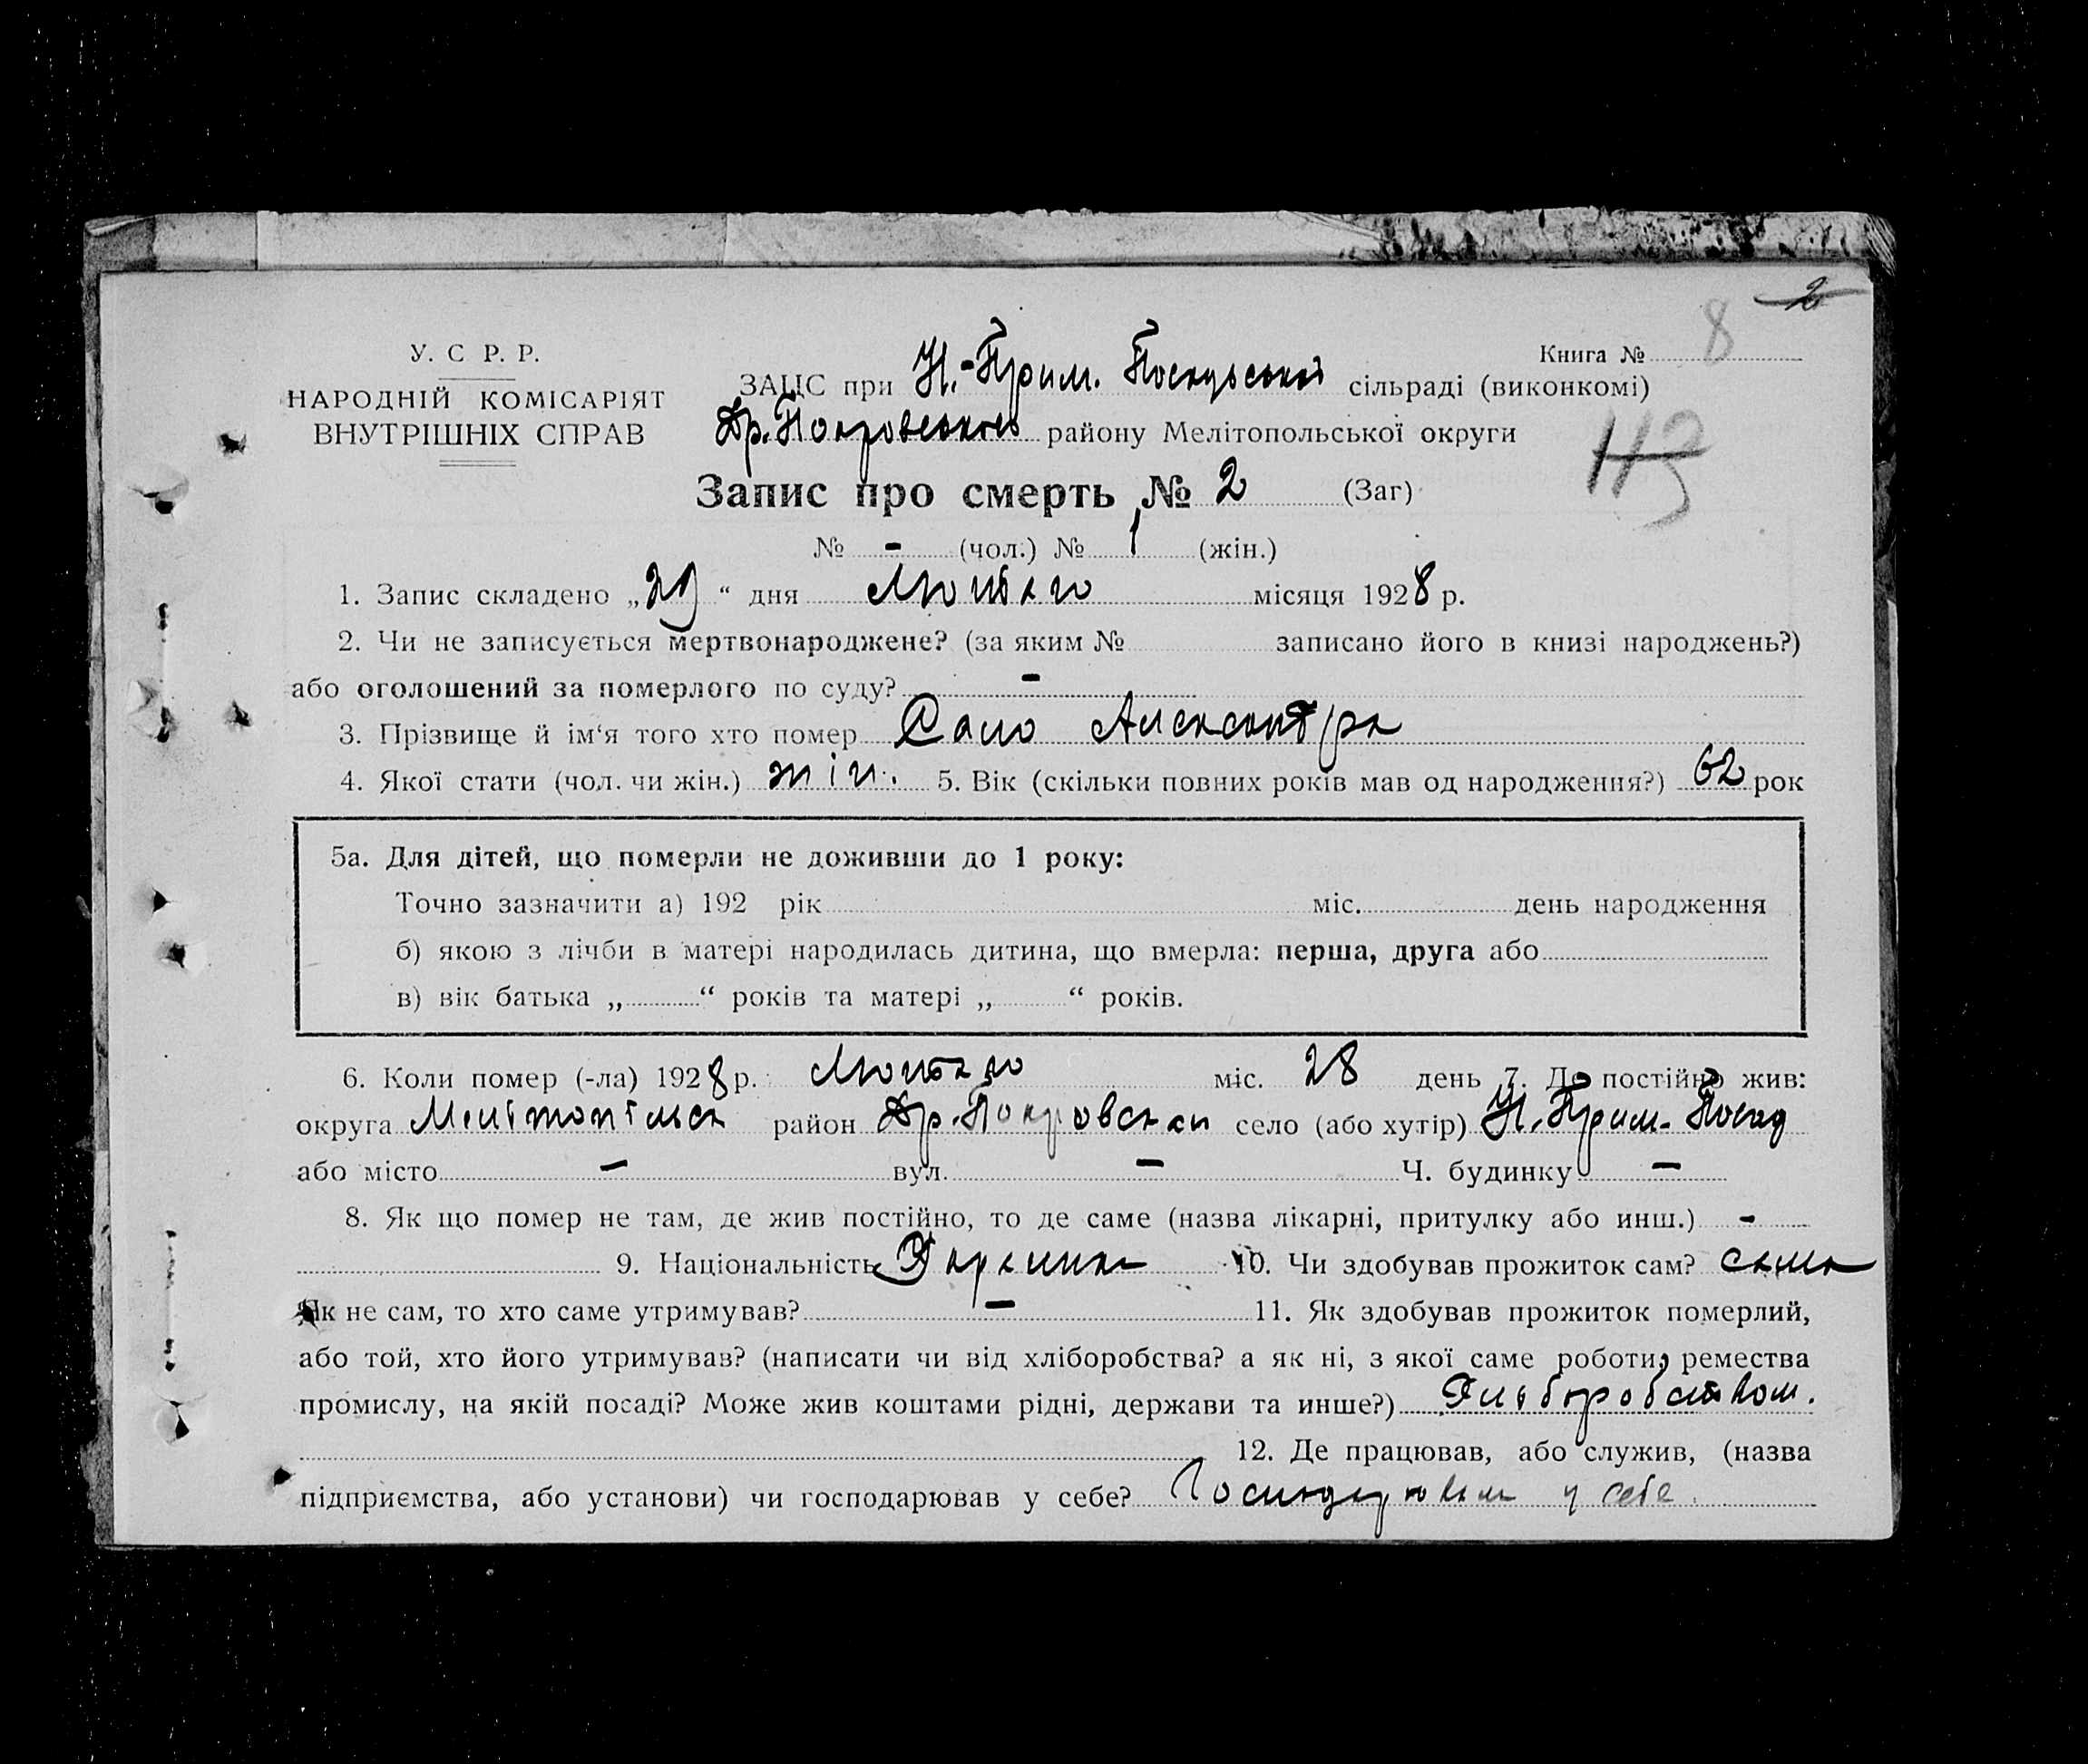 2
8
Книга №
У. С Р. Р.
НАРОДНІЙ КОМІСАРІЯТ
ВНУТРІШНІХ СПРАВ
ЗАЦС при Н.-Прим. Посадської сільраді (виконкомі)
Др. Покровського району Мелітопольської округи
113
Запис про смерть № 2 (Заг)
№ - (чол.) № 1 (жін.)
1. Запис складено „29“ дня Лютаго місяця 1928 р.
2. Чи не записується мертвонароджене? (за яким № записано його в книзі народжень?)
або оголошений за померлого по суду? -
3. Прізвище й ім‘я того хто помер Сало Александра
4. Якої стати (чол. чи жін.) жін. 5. Вік (скільки повних років мав од народження?) 62 рок
5а. Для дітей, що померли не доживши до 1 року:
Точно зазначити а) 192 рік міс. день народження
б) якою з лічби в матері народилась дитина, що вмерла: перша, друга або
в) вік батька „ “ років та матері „ “ років.
6. Коли помер (-ла) 1928 р. Лютаго міс. 28 день 7. Де постійно жив:
округа Мелітопільск район Др. Покровськи село (або хутір) Н. Прим. Посад
або місто — вул. — Ч. будинку —
8. Як що помер не там, де жив постійно, то де саме (назва лікарні, притулку або инш.) -
9. Національність Украинка 10. Чи здобував прожиток сам? сама
Як не сам, то хто саме утримував? — 11. Як здобував прожиток померлий,
або той, хто його утримував? (написати чи від хліборобства? а як ні, з якої саме роботи, ремества
промислу, на якій посаді? Може жив коштами рідні, держави та инше?) Хліборобством.
12. Де працював, або служив, (назва
підприємства, або установи) чи господарював у себе? Господарювала у себе.